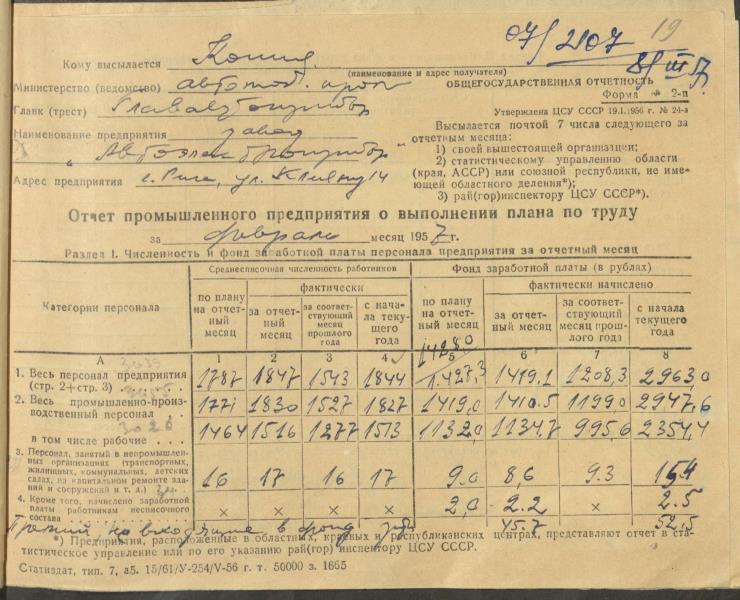 07/2107 19
8/III 57
Кому высылается Копия.
(наименование и адрес получателя)
Министерство (ведомство) автомоб. пром
Главк (трест) Глававтоприбор
Наименование предприятия завод
„Автоэлектроприбор"
Адрес предприятия г. Рига, ул. Клияну 14
ОБЩЕГОСУДАРСТВЕННАЯ ОТЧЕТНОСТЬ
Форма № 2-п
Утверждена ЦСУ СССР 19.I.1956 г. № 24-а
Высылается почтой 7 числа следующего за
отчетным месяца:
1) своей вышестоящей организации;
2) статистическому управлению области
(края, АССР) или союзной республики, не име-
ющей областного деления*);
3) рай(гор)инспектору ЦСУ СССР*).
Отчет промышленного предприятия о выполнении плана по труду
за февраль месяц 1957 г.
Раздел I. Численность и фонд заработной платы персонала предприятия за отчетный месяц
Категории персонала
Среднесписочная численность работников
Фонд заработной платы (в рублях)
по плану на отчетный месяц
фактически
за отчетный месяц
за соответствующий месяц прошлого года
с начала текущего года
по плану на отчетный месяц
фактически начислено
за отчетный месяц
за соответствующий месяц прошлого года
с начала текущего года
14280
А 1 2 3 4 5 6 7 8
1. Весь персонал предприятия
(стр. 2+стр. 3) 1787 1847 1543 1844 1427,3 1419.1 1208,3 2963,0
2. Весь промышленно-произ-
водственный персонал 1771 1830 1527 1827 1419,0 1410.5 1199.0 2947,6
в том числе рабочие 1464 1516 1277 1513 1132.0 1134,7 995,6 2354,4
3. Персонал, занятый в непромышлен-
ных организациях (транспортных,
жилищных, коммунальных, детских
садах, на капитальном ремонте зда-
ний и сооружений и т. д.) 16 17 16 17 9.0 8,6 9.3 15.4
4. Кроме того, начислено заработной
платы работникам несписочного
состава × × × × 2,0 2.2 × 2.5
в фонд 45.7 52,5
*) Предприятия, расположенные в областных, краевых и республиканских центрах, представляют отчет в ста-
тистическое управление или по его указанию рай(гор) инспектору ЦСУ СССР.
Статиздат, тип. 7, а5. 15/61/У-254/V-56 г. т. 50000 з. 1665